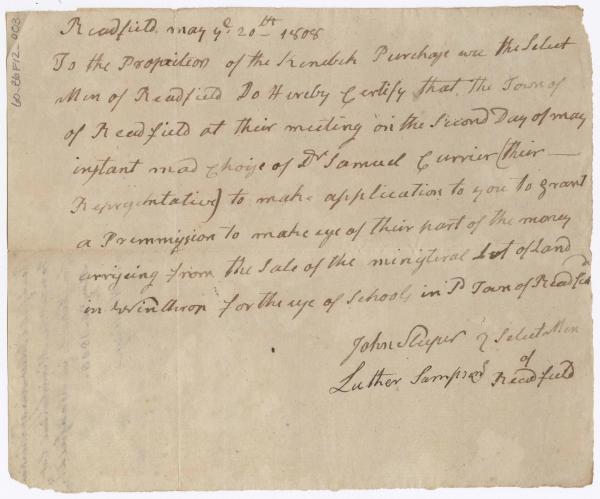 60-B6F12-003
Readfield, may ye. 20th 1808
To the Propration of the Kenebek Purchase wee the Select
Men of Readfield Do Hereby Certify that the Town of
of Readfield at their meeting on the Second Day of may
instant mad Choise of Dr Samuel Currier (their
Representative) to make application to you to grant
a Premmission to make use of their part of the money
arriseing from the Sale of the ministeral Lot of Land
in Winthrop for the use of Schools in sd Town of Readfield
John Sleeper } Select Men
of
Luther Sampson Readfield